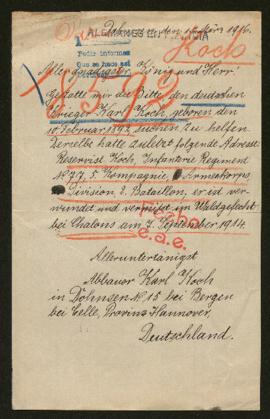 ALEMANES EN FRANCIA
1916.
Pedir informes
Koch
Allergnädigster König und Herr
Gestatte mir die Bitte den deutschen
Krieger Karl Koch, geboren den
10 Februar 1892 suchen zu helfen
Derselbe hatte zuletzt folgende Adresse
Reservist Koch, Infanterie Regiment
N 77, 5 Kompagnie Armeekorps
Division, 2. Bataillon, er ist ver-
wundet und vermißt im Waldgefecht
bei Chalons am 7. September 1914.
Alleruntertänigst
Abbauer Karl Koch
in Dohnsen N. 15 bei Bergen
bei Celle, Provinz Hannover,
Deutschland.